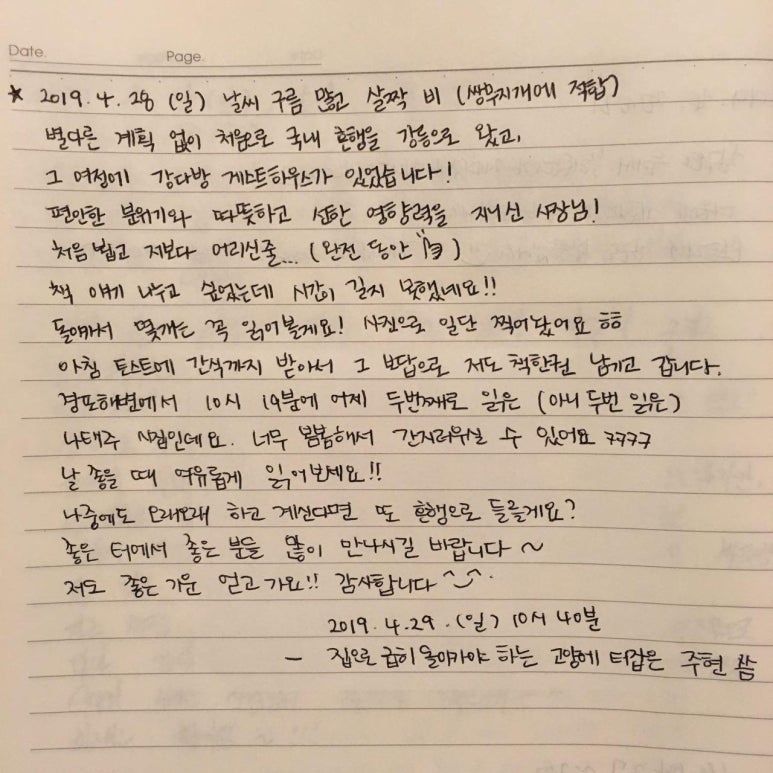 Date.
Page.
★ 2019. 4. 28 (일) 날씨 구름 많고 살짝 비 (쌍무지개에 적합)
별다른 계획 없이 처음으로 국내 혼행을 강릉으로 왔고,
그 여정에 강다방 게스트하우스가 있었습니다!
편안한 분위기와 따뜻하고 선한 영향력을 지니신 사장님!
처음 뵙고 저보다 어리신줄... (완전 동안)
책 얘기 나누고 싶었는데 시간이 길지 못했네요!!
돌아가서 몇개는 꼭 읽어볼게요! 사진으로 일단 찍어놨어요 ㅎㅎ
아침 토스트에 간식까지 받아서 그 보답으로 저도 책한권 남기고 갑니다.
경포해변에서 10시 19분에 어제 두번째로 읽은 (아니 두번 읽은)
나태주 시집인데요. 너무 봄봄해서 간지러우실 수 있어요 ㅋㅋㅋㅋ
날 좋을 때 여유롭게 읽어보세요!!
나중에도 오래오래 하고 계신다면 또 혼행으로 들를게요?
좋은 터에서 좋은 분들 많이 만나시길 바랍니다 ~
저도 좋은 기운 얻고 가요!! 감사합니다 ^_^.
2019. 4. 29. (일) 10시 40분
- 집으로 급히 돌아가야 하는 고양에 터잡은 주현 씀